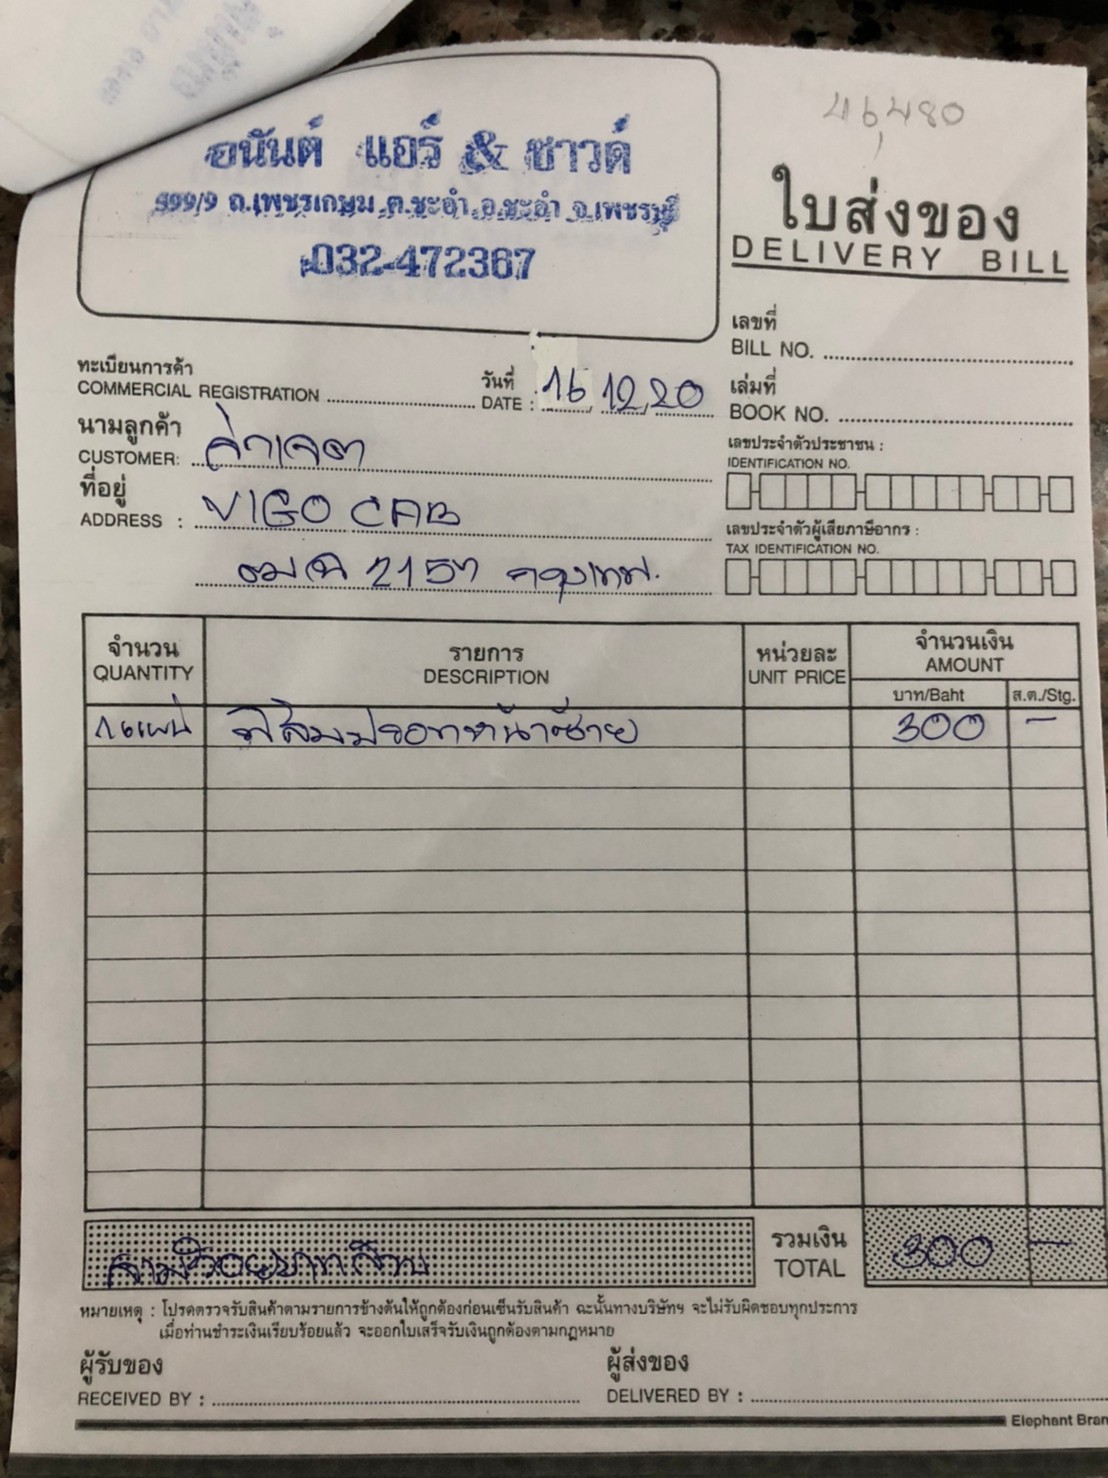 46,480
อนันต์ แอร์ & ซาวด์
899/9 ถ.เพชรเกษม ต.ชะอำ อ.ชะอำ จ.เพชรบุรี
032-472367
ใบส่งของ
DELIVERY BILL
เลขที่
BILL NO.
ทะเบียนการค้า
COMMERCIAL REGISTRATION
วันที่
DATE : 16, 12, 20
เล่มที่
BOOK NO.
นามลูกค้า
CUSTOMER:
เลขประจำตัวประชาชน :
IDENTIFICATION NO.
ที่อยู่
ADDRESS : VIGO CAB
เลขประจำตัวผู้เสียภาษีอากร :
TAX IDENTIFICATION NO.
2157 กรุงเทพ.
จำนวน
QUANTITY
รายการ
DESCRIPTION
หน่วยละ
UNIT PRICE
จำนวนเงิน
AMOUNT
บาท/Baht
ส.ต./Stg.
ฟิล์มปรอทหน้าซ้าย 300 -
สามร้อยบาทถ้วน
รวมเงิน
TOTAL
300 -
หมายเหตุ : โปรดตรวจรับสินค้าตามรายการข้างต้นให้ถูกต้องก่อนเซ็นรับสินค้า ฉะนั้นทางบริษัทฯ จะไม่รับผิดชอบทุกประการ
เมื่อท่านชำระเงินเรียบร้อยแล้ว จะออกใบเสร็จรับเงินถูกต้องตามกฎหมาย
ผู้รับของ
RECEIVED BY :
ผู้ส่งของ
DELIVERED BY :
Elephant Bran